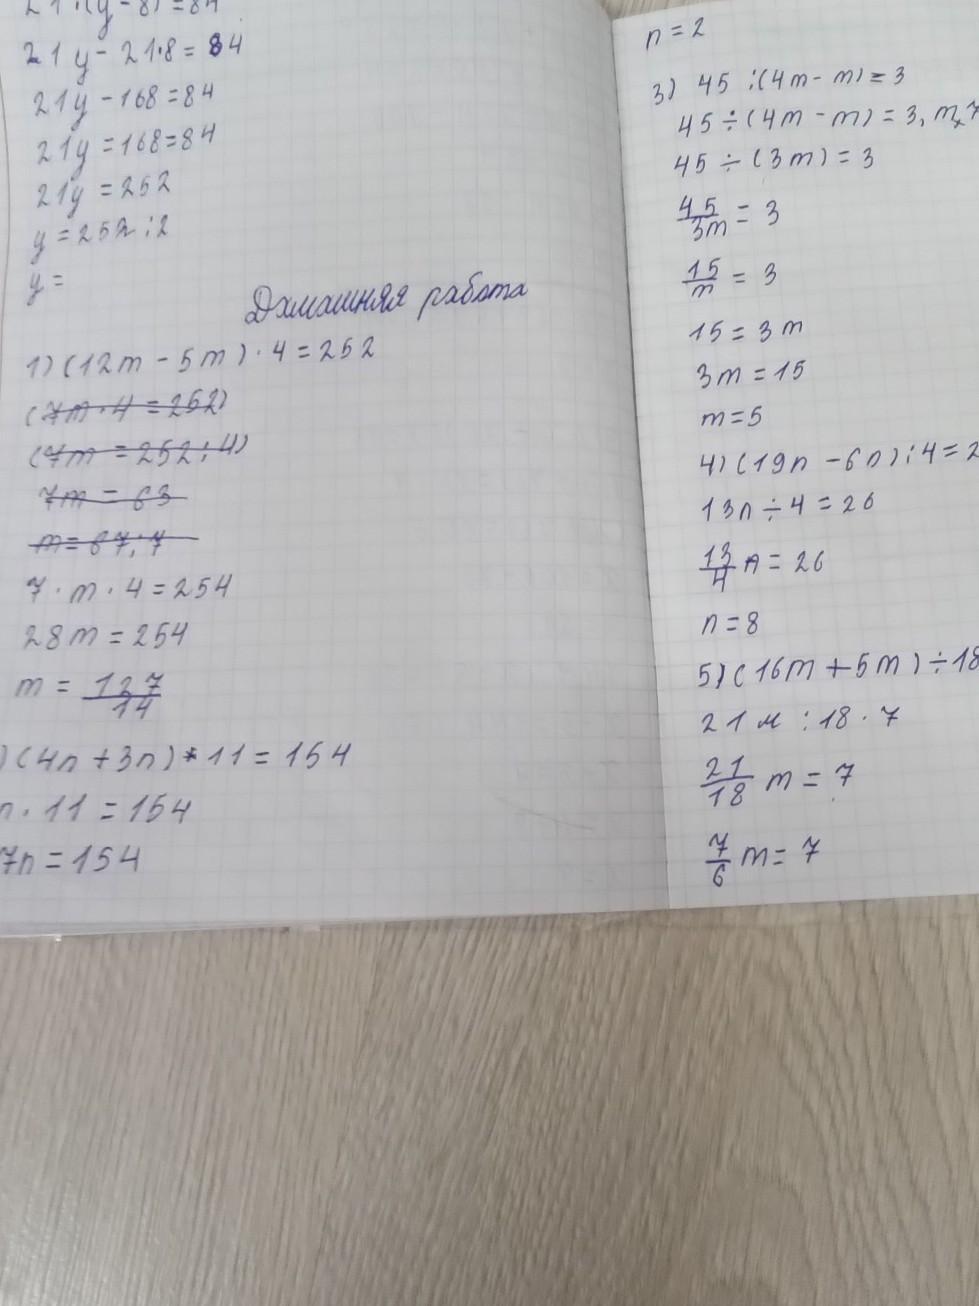 21·(y-8)=84
21y-21·8=84
21y-168=84
21y=168=84
21y=252
y=252:2
y=
Домашняя работа
1)(12m-5m)·4=252
(7m·4=252)
(7m=252:4)
7m=63
m=67:7
7·m·4=254
28m=254
m=127/14
)(4n+3n)*11=154
n·11=154
7n=154
n=2
3) 45:(4m-m)=3
45÷(4m-m)=3, m
45÷(3m)=3
45/3m=3
15/m=3
15=3m
3m=15
m=5
4)(19n-6n):4=2
13n÷4=26
13/4 n=26
n=8
5)(16m+5m)÷18
21м:18·7
21/18 m=7
7/6 m=7